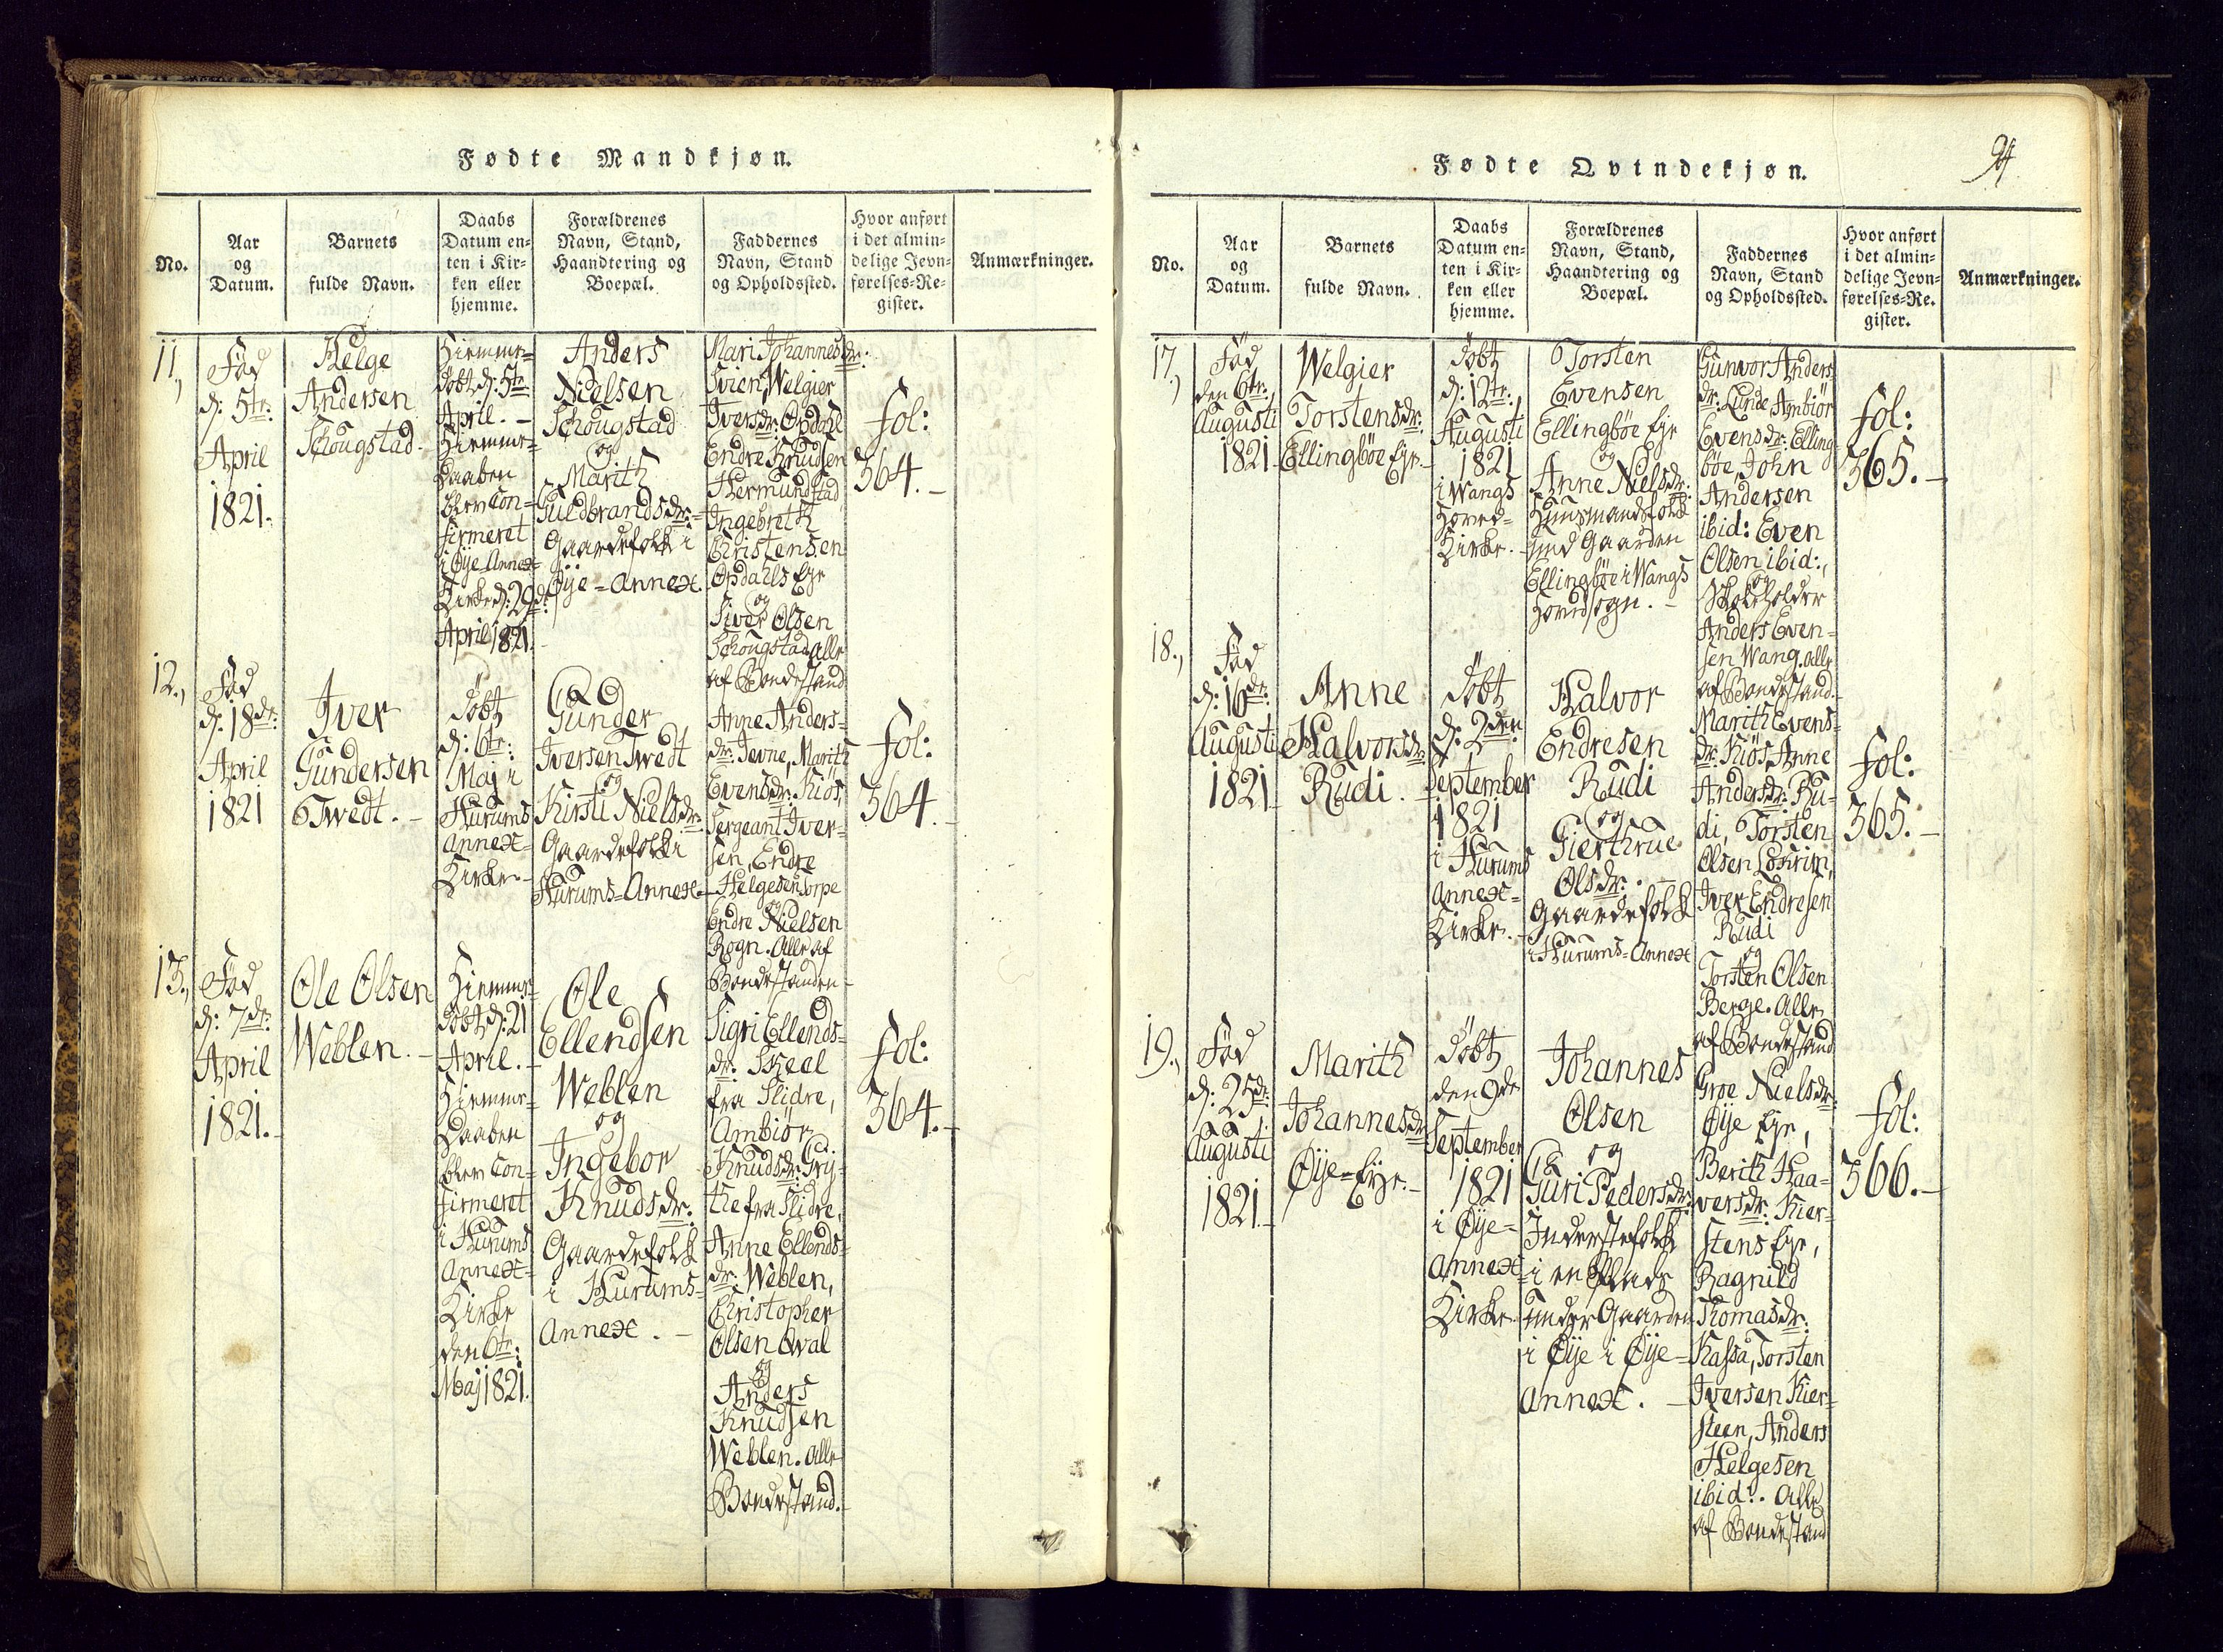 Fødte Mandkjøn.
No.
Aar
og
Datum.
Barnets
fulde Navn.
Daabs
Datum en-
ten i Kir-
ken eller
hjemme.
Forældrenes
Navn, Stand,
Haandtering og
Boepæl.
Faddernes
Navn, Stand
og Opholdssted.
Hvor anført
i det almin-
delige Jevn-
førelses-Re-
gister.
Anmærkninger.
11.,
Fød
d: 5te
April
1821.
Helge
Andersen
Schougstad.
Hiemme-
døbt d: 5te
April. -
Hiemme-
Daaben
blev Con-
firmeret
i Øje Annex-
Kirke d: 29de
April 1821.
Anders
Nielsen
Schougstad
og
Marith
Guldbrandsdr:
Gaardefolk i
Øje-Annex.
Mari Johannesdr:
Svien, Welgier
Iversdr: Opdal
Endre Knudsen
Hermundstad
Ingebreth
Christensen
Opdals Eye
og
Siver Olsen
Schougstad alle
af Bondestand
fol:
364.-
12.,
Fød
d: 18de
April
1821
Iver
Gundersen
Twedt. -
Døbt
d: 6te:
Maj i
Hurums
Annex-
Kirke.-
Gunder
Iversen Twedt
og
Kirsti Nielsdr:
Gaardefolk i
Hurums-Annex.
Anne Anders-
dr: Jevne, Marith
Evensdr: Kiøs,
Sergeant Iver-
sen, Endre
Helgesen Torpe
og
Endre Nielsen
Rogn. Alle af
Bondestanden-
fol:
364.-
13.,
Fød
d: 7de
April
1821.-
Ole Olsen
Weblen. -
Hiemme-
døbt d: 21
April. -
Hiemme-
Daaben
blev Con-
firmeret
i Hurums
Annex-
Kirke
den 6te:
Maj 1821.
Ole
Ellendsen
Weblen
og
Ingebor
Knudsdr:
Gaardefolk
i Hurums-
Annex. -
Sigri Ellends-
dr: Skeel
fra Slidre,
Ambiør
Knudsdr: Gry-
the fra Slidre,
Anne Ellends-
dr: Weblen,
Christopher
Olsen Qval
og
Anders
Knudsen
Weblen. Alle
Bondestand.-
fol:
364.-
Fødte Qvindekjøn.
94.
No.
Aar
og
Datum.
Barnets
fulde Navn.
Daabs
Datum en-
ten i Kir-
ken eller
hjemme.
Forældrenes
Navn, Stand,
Haandtering og
Boepæl.
Faddernes
Navn, Stand
og Opholdssted.
Hvor anført
i det almin-
delige Jevn-
førelses-Re-
gister.
Anmærkninger.
17.,
Fød
den 6te:,
Augusti
1821
Welgier
Torstensdr:
Ellingbøe Eye-
Døbt
d: 12te:,
Augusti
1821
i Wangs
Hoved-
Kirke.-
Torsten
Evensen
Ellingbøe Eye
og
Anne Nielsdr:
Huusmandsfolk
und Gaarden
Ellingbøe i Wangs
Hovedsogn. -
Gunvor Anders
dr: Lunde Ambiør
Evensdr: Elling-
bøe, John
Andersen
ibid: Even
Olsen ibid:,
og
Skoleholder
Anders Even-
sen Wang. alle
af Bondestand.
fol:
365.-
18.,
Fød
d: 16de:
Augusti
1821
Anne
Halvorsdr:
Rudi. -
Døbt
d: 2den
September
1821
i Hurums
Annex-
Kirke.-
Halvor
Endresen
Rudi
og
Gierthrue
Olsdr:
Gaardefolk
i Hurums-Annex
Marith Evens-
dr: Kiøs, Anne
Andersdr: Ru-
di, Torsten
Olsen
Iver Endresen
Rudi
og
Torsten Olsen
Berge. Alle
af Bondestand
fol:
365.-
19.,
Fød
d: 25de:
Augusti
1821.-
Marith
Johannesdr:
Øije-Eije.-
Døbt
den 9de
September
1821
i Øije-
Annex-
Kirke
Johannes
Olsen
og
Guri Pedersdr:
Inderstefolk
i en Plads
under Gaarden
i Øije i Øije-
Annex. -
Groe Nielsdr:
Øije Eye,
Berith Haa-
versdr: Kier-
stens Eye,
Ragnild
Thomasdr:
Kassa, Torsten
Iversen Kier-
steen, Anders
Helgesen
ibid:. Alle
af Bondestand
fol:
366.-